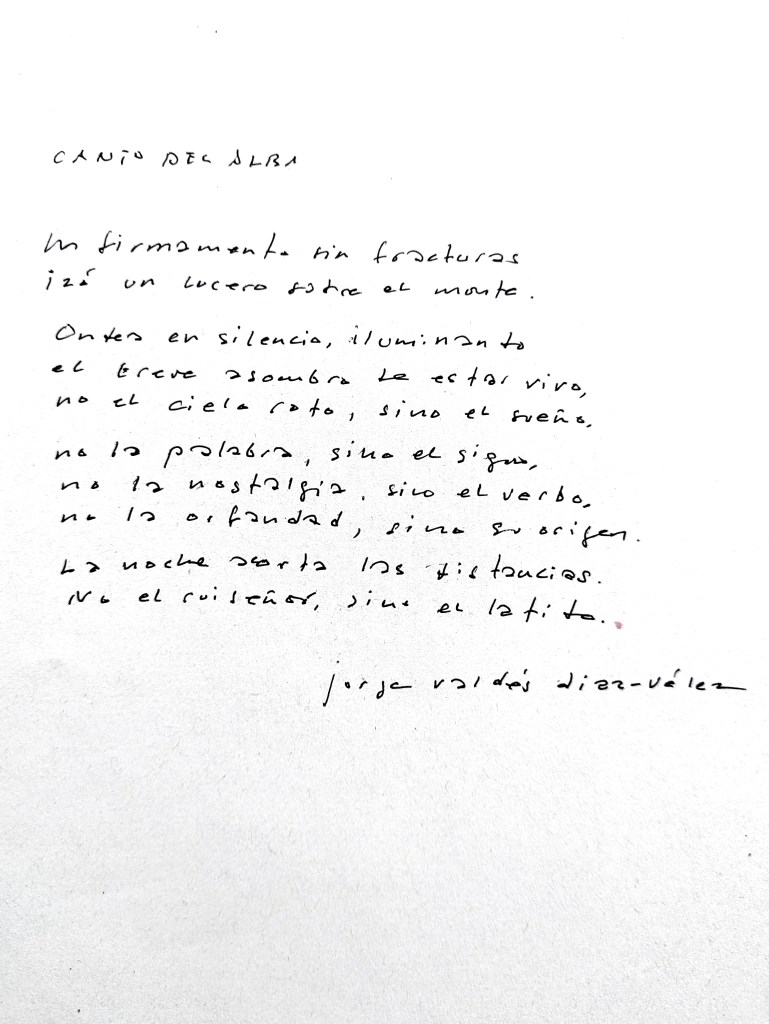 CANTO DEL ALBA
Un firmamento sin fracturas
izó un lucero sobre el monte.
Ondea en silencio, iluminando
el breve asombro de estar vivo,
no el cielo roto, sino el sueño,
no la palabra, sino el signo,
no la nostalgia, sino el verbo,
no la orfandad, sino su origen.
La noche acorta las distancias.
No el ruiseñor, sino el latido.
jorge valdés díaz-vélez